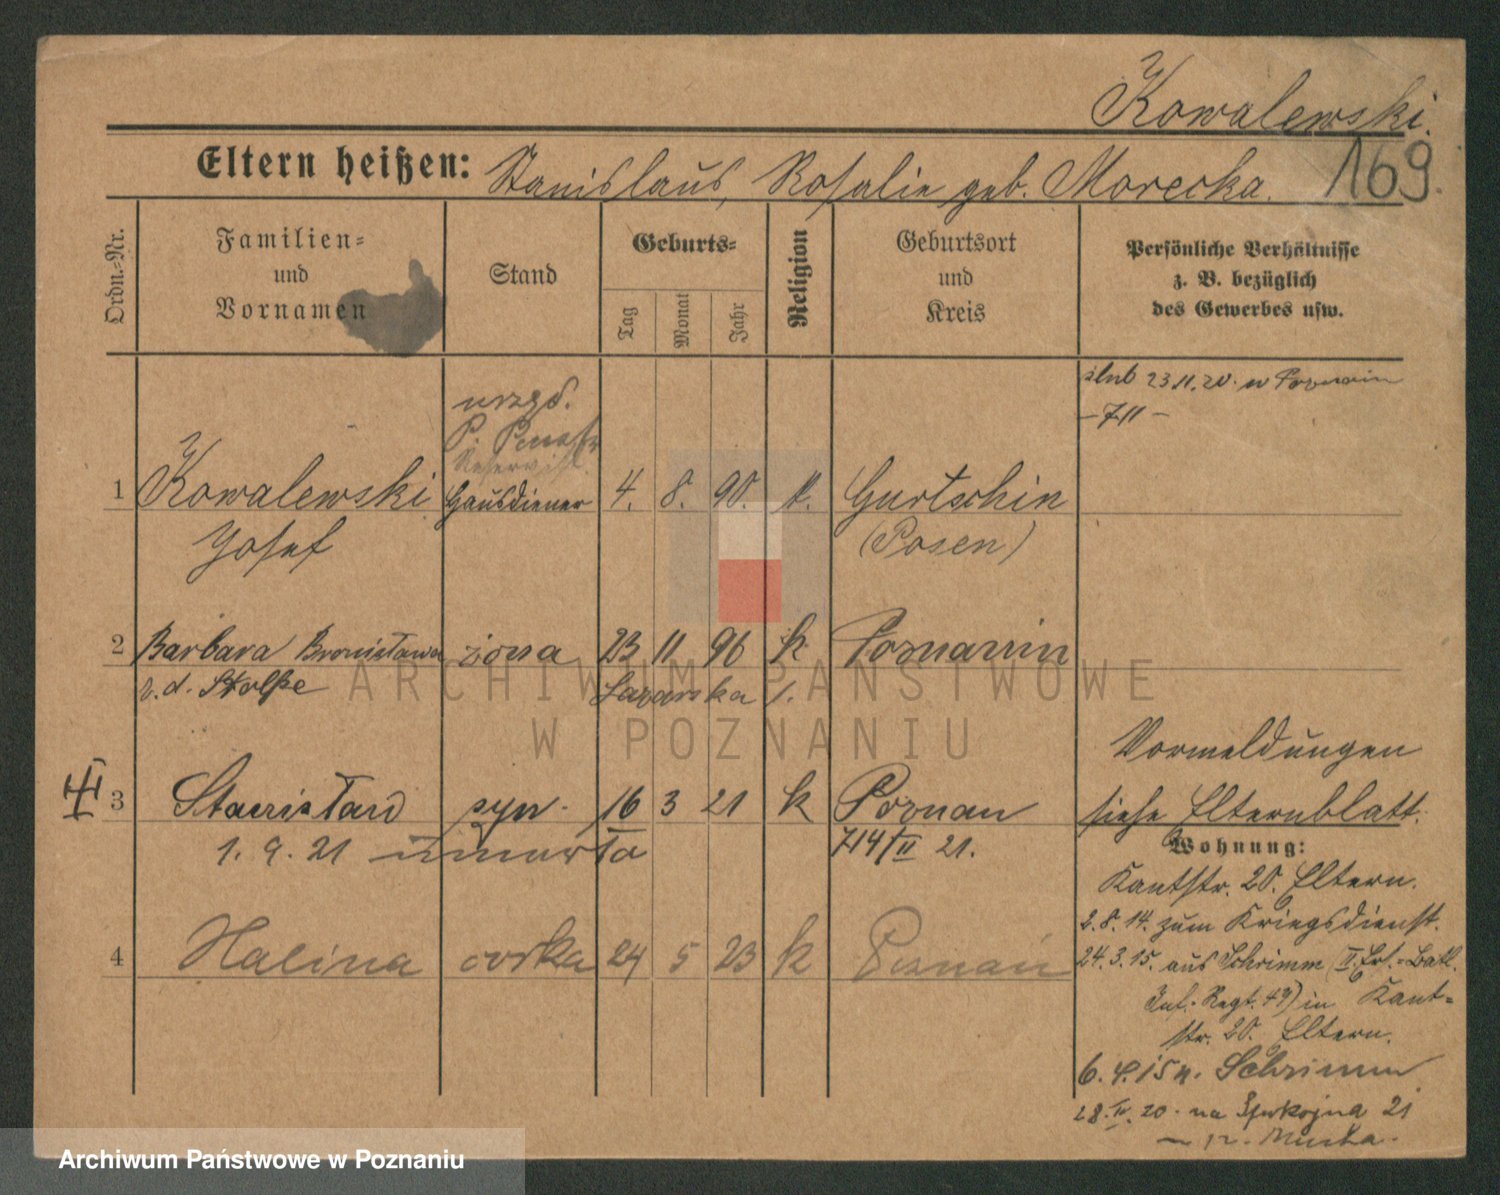 Kowalewski.
169.
Eltern heißen: Stanislaus, Rosalie geb. Morecka.
Ordn.-Nr.
Familien-
und
Vornamen
Stand
Geburts-
Tag
Monat
Jahr
Religion
Geburtsort
und
Kreis
Persönliche Verhältnisse
z. B. bezüglich
des Gewerbes usw.
ślub 23.11.20. w Poznaniu
urzęd.
1 Kowalewski Hausdiener 4. 8. 90. k. Gurtschin
Josef (Posen)
2 Barbara Bronisława żona 23 11 96 k Poznań
z. d. Stolpe Łazarska 1.
Vormeldungen
3 Stanisław syn 16 3 21 k Poznań siehe Elternblatt.
1. 9. 21 714/II 21.
Wohnung:
Kantstr. 20. Eltern.
2.8.14. zum Kriegsdienst.
4 Halina córka 24 5 23 k Poznań
24.3.15. aus Schrimm (II. Ers.-Batl.
Inf. Regt. 47) in Kant-
str. 20. Eltern.
6.4.15 n. Schrimm
28.IV.20. na Spokojna 21
ARCHIWUM PAŃSTWOWE
W POZNANIU
Archiwum Państwowe w Poznaniu